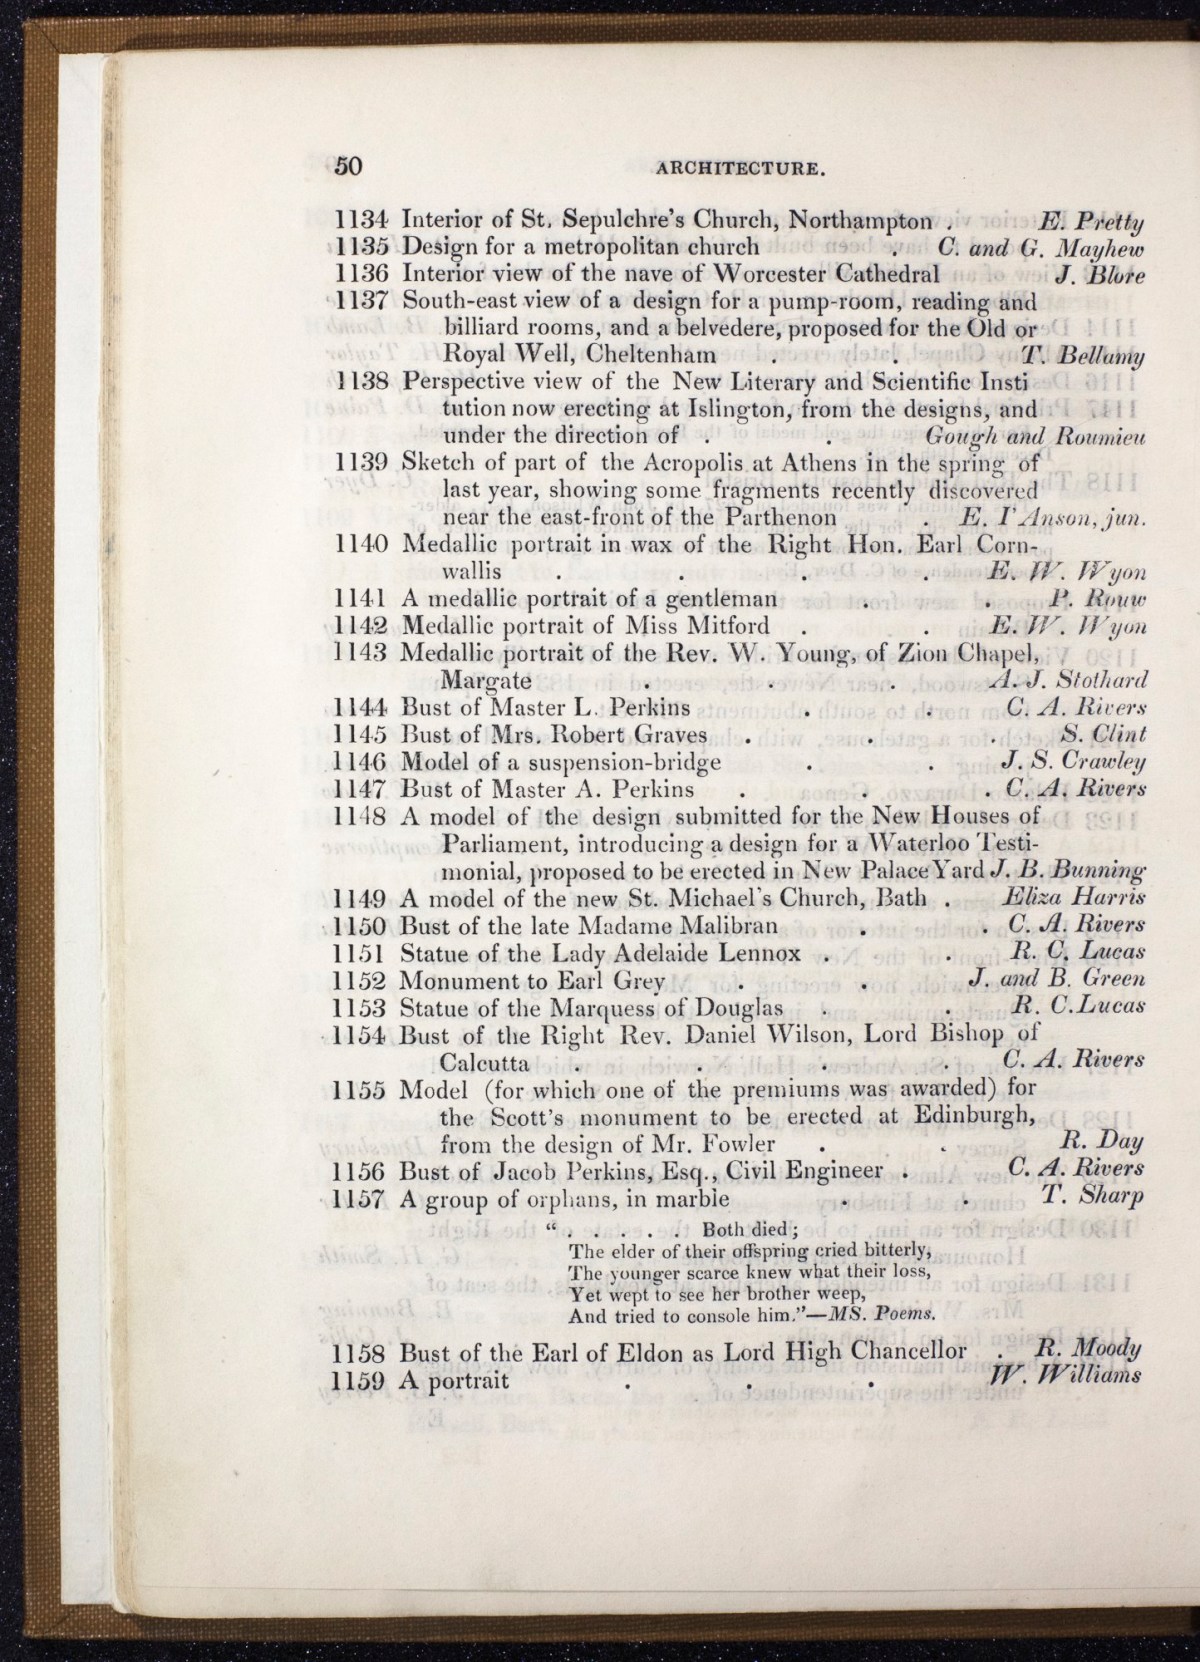 50 ARCHITECTURE.
1134 Interior of St. Sepulchre's Church, Northampton . E. Pretty
1135 Design for a metropolitan church . C. and G. Mayhew
1136 Interior view of the nave of Worcester Cathedral J. Blore
1137 South-east view of a design for a pump-room, reading and
billiard rooms, and a belvedere, proposed for the Old or
Royal Well, Cheltenham . . T. Bellamy
1138 Perspective view of the New Literary and Scientific Insti
tution now erecting at Islington, from the designs, and
under the direction of . . Gough and Roumieu
1139 Sketch of part of the Acropolis at Athens in the spring of
last year, showing some fragments recently discovered
near the east-front of the Parthenon . E. I'Anson, jun.
1140 Medallic portrait in wax of the Right Hon. Earl Corn-
wallis . . . . E. W. Wyon
1141 A medallic portrait of a gentleman . . P. Rouw
1142 Medallic portrait of Miss Mitford . . E. W. Wyon
1143 Medallic portrait of the Rev. W. Young, of Zion Chapel,
Margate . . . A. J. Stothard
1144 Bust of Master L. Perkins . . C. A. Rivers
1145 Bust of Mrs. Robert Graves . . . S. Clint
1146 Model of a suspension-bridge . . J. S. Crawley
1147 Bust of Master A. Perkins . . . C. A. Rivers
1148 A model of the design submitted for the New Houses of
Parliament, introducing a design for a Waterloo Testi-
monial, proposed to be erected in New Palace Yard J. B. Bunning
1149 A model of the new St. Michael's Church, Bath . Eliza Harris
1150 Bust of the late Madame Malibran . . C. A. Rivers
1151 Statue of the Lady Adelaide Lennox . . R. C. Lucas
1152 Monument to Earl Grey . . J. and B. Green
1153 Statue of the Marquess of Douglas . . R. C. Lucas
1154 Bust of the Right Rev. Daniel Wilson, Lord Bishop of
Calcutta . . . . C. A. Rivers
1155 Model (for which one of the premiums was awarded) for
the Scott's monument to be erected at Edinburgh,
from the design of Mr. Fowler . . R. Day
1156 Bust of Jacob Perkins, Esq., Civil Engineer . C. A. Rivers
1157 A group of orphans, in marble . . T. Sharp
" . . . . . Both died;
The elder of their offspring cried bitterly,
The younger scarce knew what their loss,
Yet wept to see her brother weep,
And tried to console him."—MS. Poems.
1158 Bust of the Earl of Eldon as Lord High Chancellor . R. Moody
1159 A portrait . . . W. Williams